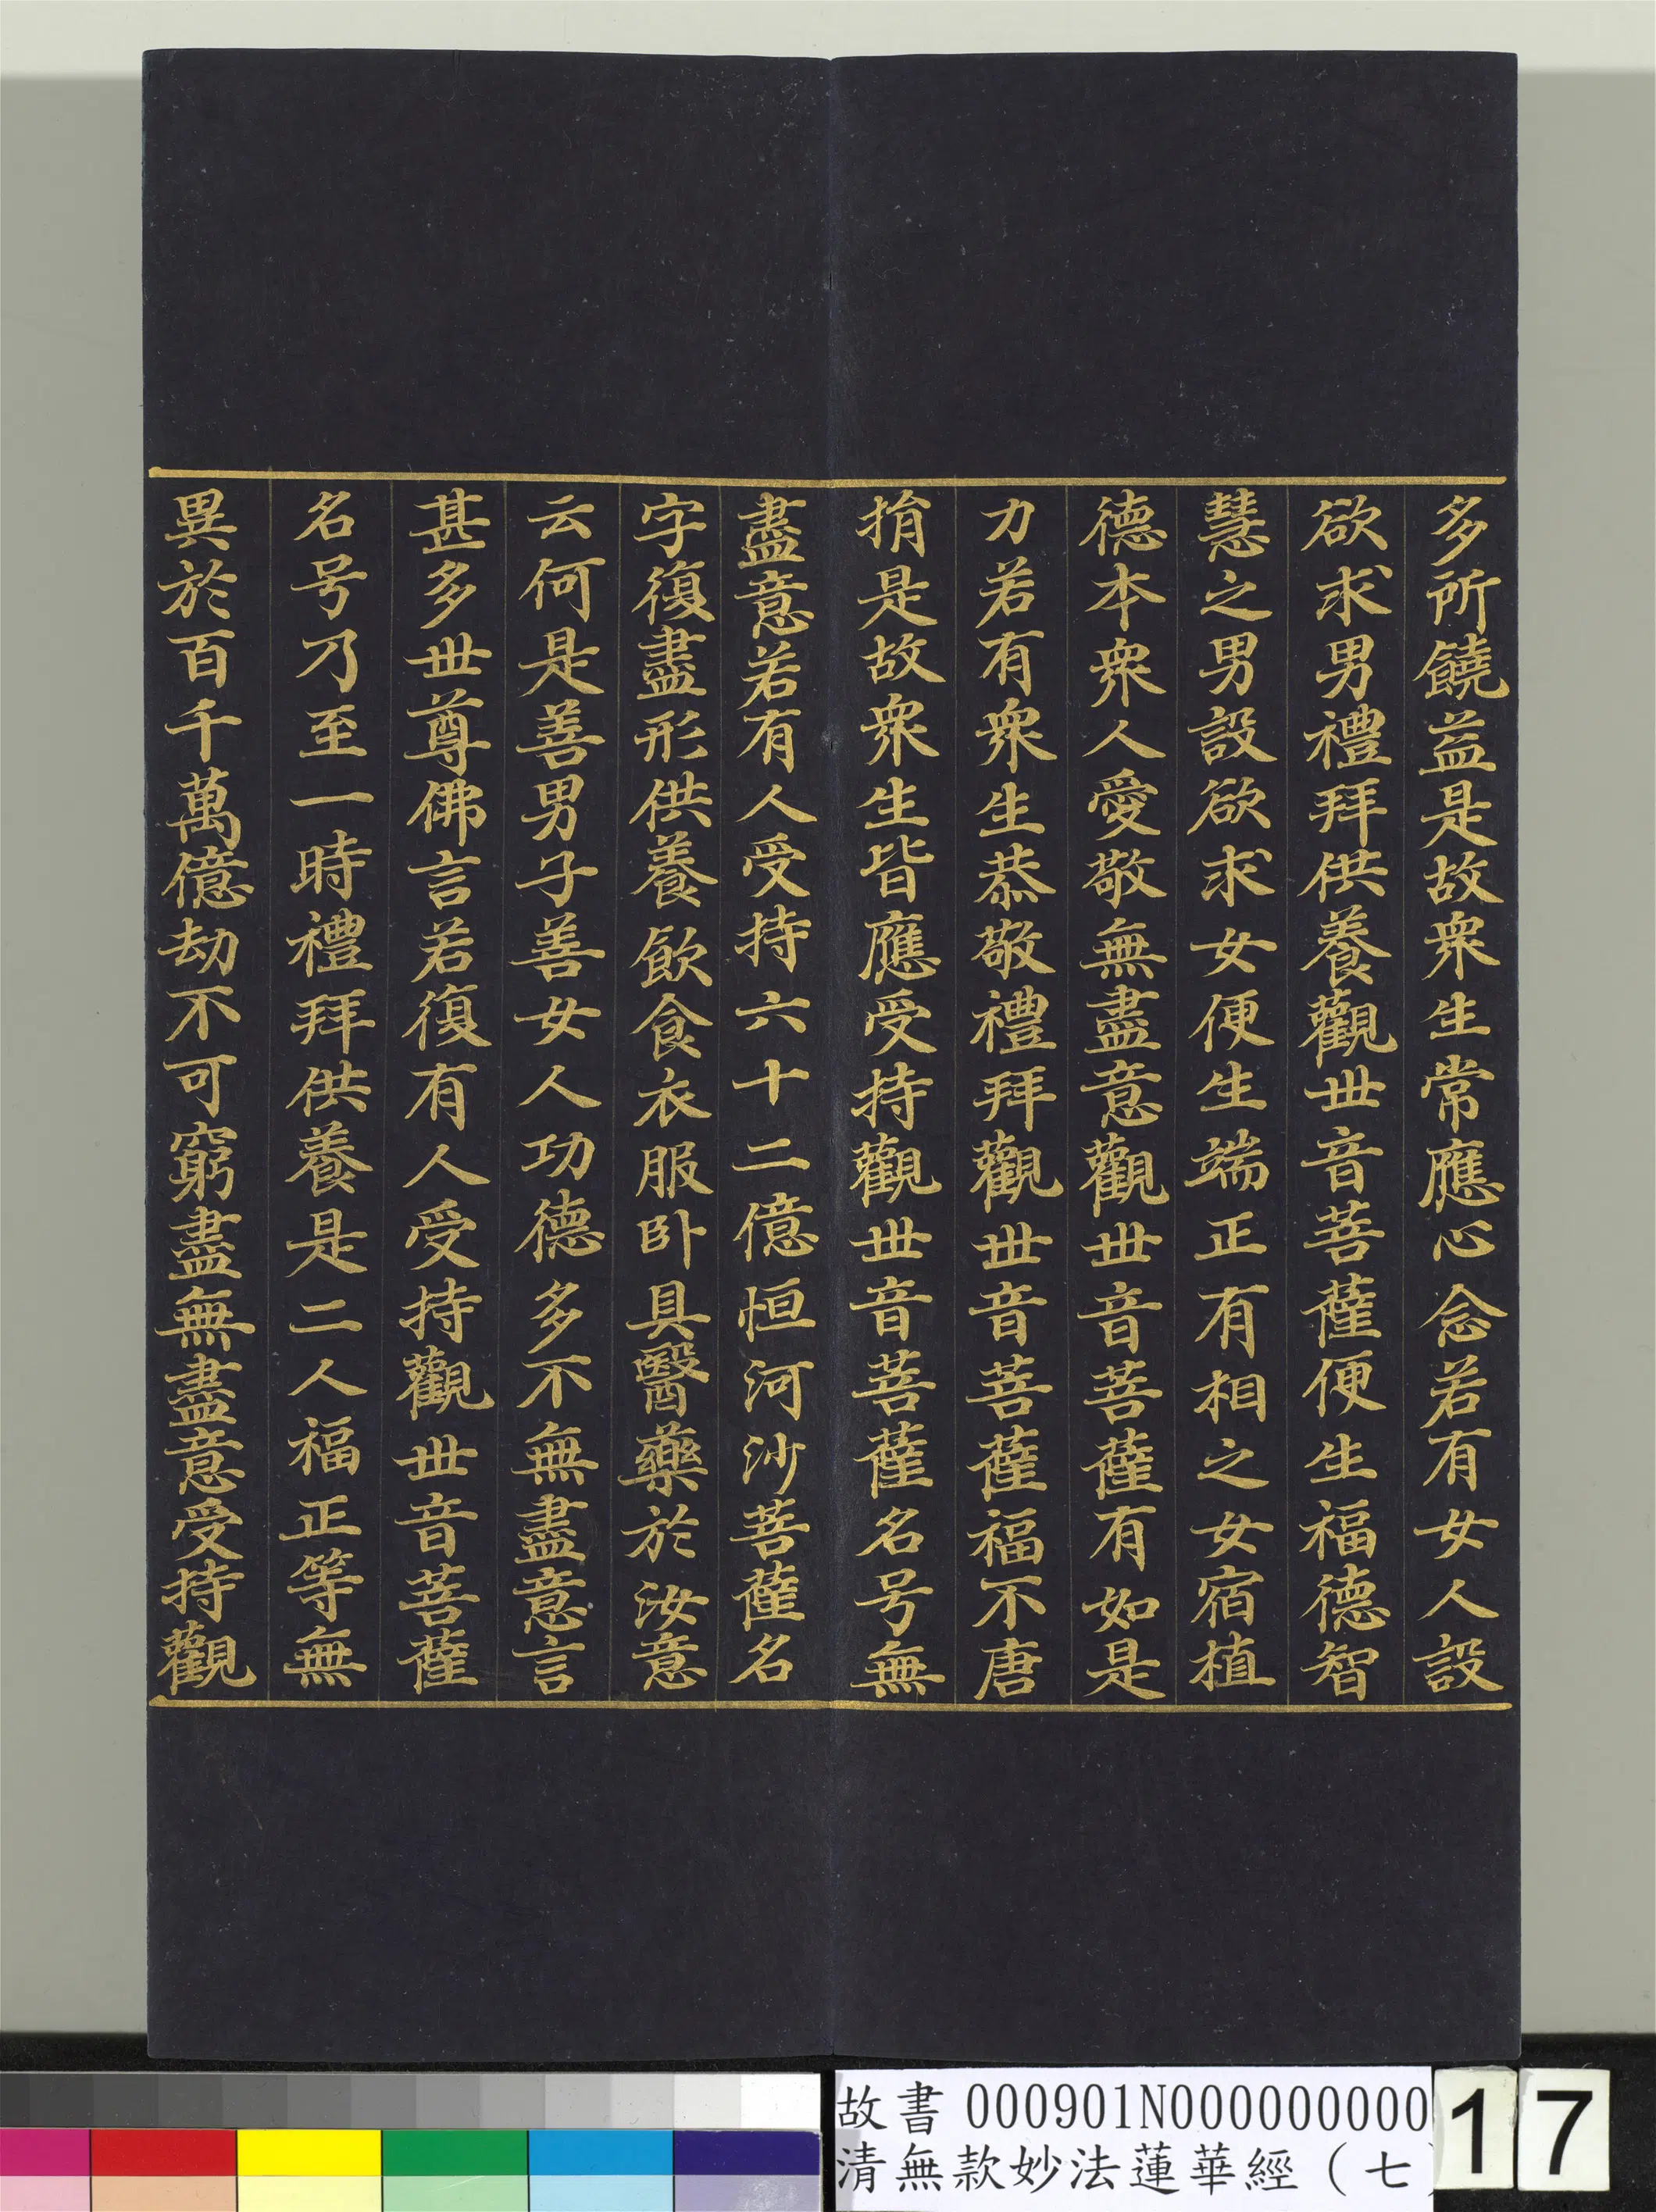 多所饒益是故衆生常應心念若有女人設
欲求男禮拜供養觀世音菩薩便生福德智
慧之男設欲求女便生端正有相之女宿植
德本衆人愛敬無盡意觀世音菩薩有如是
力若有衆生恭敬禮拜觀世音菩薩福不唐
捐是故衆生皆應受持觀世音菩薩名号無
盡意若有人受持六十二億恒河沙菩薩名
字復盡形供養飲食衣服卧具醫藥於汝意
云何是善男子善女人功德多不無盡意言
甚多世尊佛言若復有人受持觀世音菩薩
名号乃至一時禮拜供養是二人福正等無
異於百千萬億劫不可窮盡無盡意受持觀
故書 000901N000000000
清無款妙法蓮華經（七
17